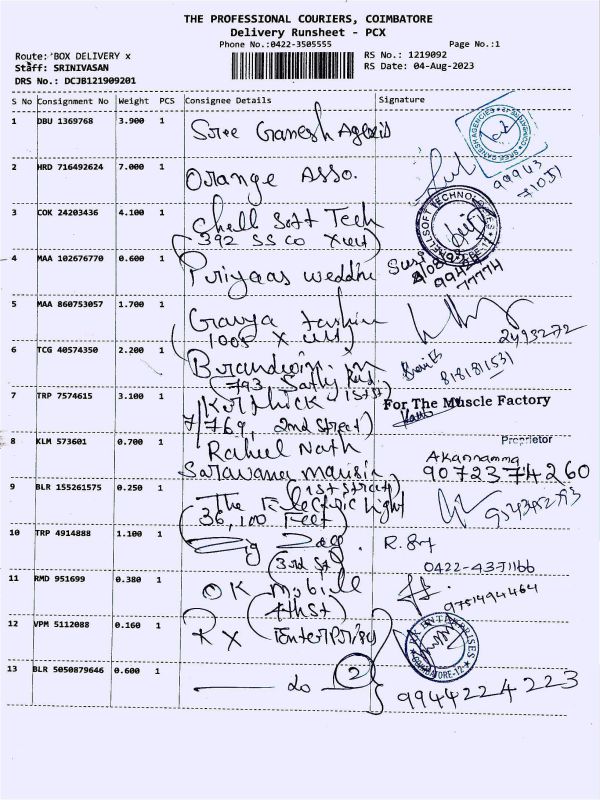 THE PROFESSIONAL COURIERS, COIMBATORE
Delivery Runsheet - PCX
Phone No.:0422-3505555 Page No.:1
Route: BOX DELIVERY x RS No.: 1219092
Staff: SRINIVASAN RS Date: 04-Aug-2023
DRS No.: DCJB121909201
S No Consignment No Weight PCS Consignee Details Signature
1 DBU 1369768 3.900 1 Sree Ganesh Agencis
2 HRD 716492624 7.000 1 Orange Asso.
99943
71051
3 COK 24203436 4.100 1 Shell Soft Tech
(392 SS Co
4 MAA 102676770 0.600 1 Priyaas
99424
77774
5 MAA 860753057 1.700 1 Gavya fashion
(1005 X
6 TCG 40574350 2.200 1
8181811531
(793 Sathy Rd.
7 TRP 7574615 3.100 1 Karthick (1st St)
For The Muscle Factory
7/769, 2nd Street)
Proprietor
8 KLM 573601 0.700 1 Rahul Nath
Akannamma
9072374260
Saravana
(1st Street)
9 BLR 155261575 0.250 1 The Electric Light
(36, 100 Feet)
10 TRP 4914888 1.100 1
(3rd St)
11 RMD 951699 0.380 1 OK Mobile
9751494464
(4th St)
12 VPM 5112088 0.160 1 KX Enterprises
13 BLR 5050879646 0.600 1 do (2)
9944224223